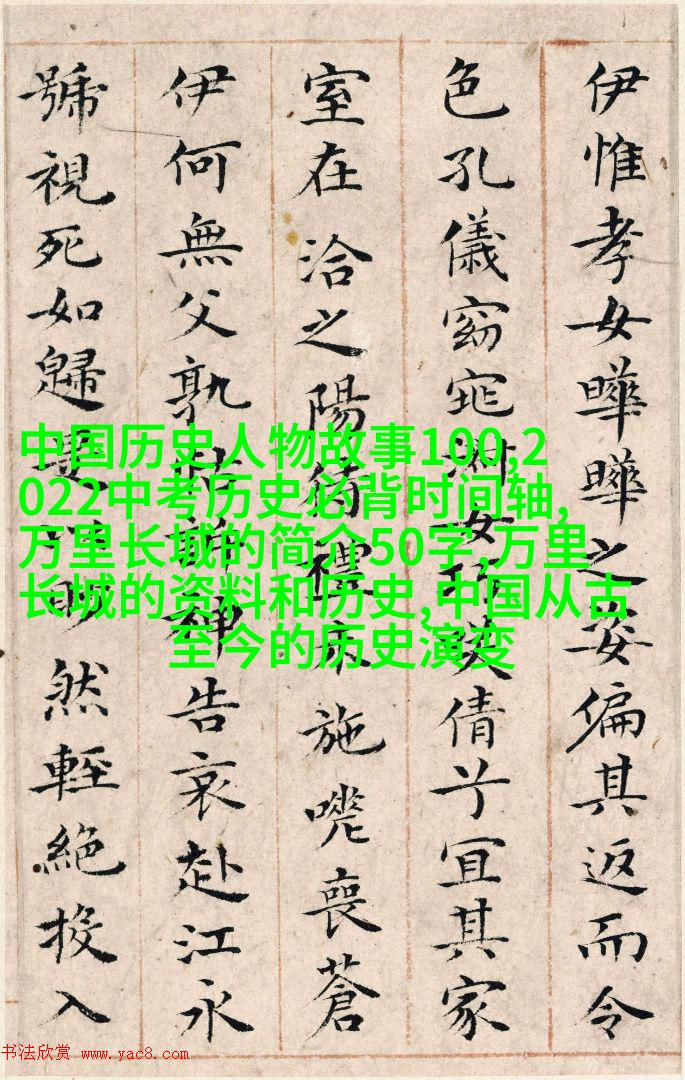 伊惟孝女曄曄之姿偏其返而令
色孔儀窈窕淑女巧笑倩兮宜其家
室在洽之陽待禮未施嗟喪蒼
伊何無父孰怙訴神告哀赴江永
號視死如歸是以眇然輕絕投入
中国历史人物故事100,2
022中考历史必背时间轴,
万里长城的简介50字,万里
长城的资料和历史,中国从古
至今的历史演变
书法欣赏 www.yac8.com